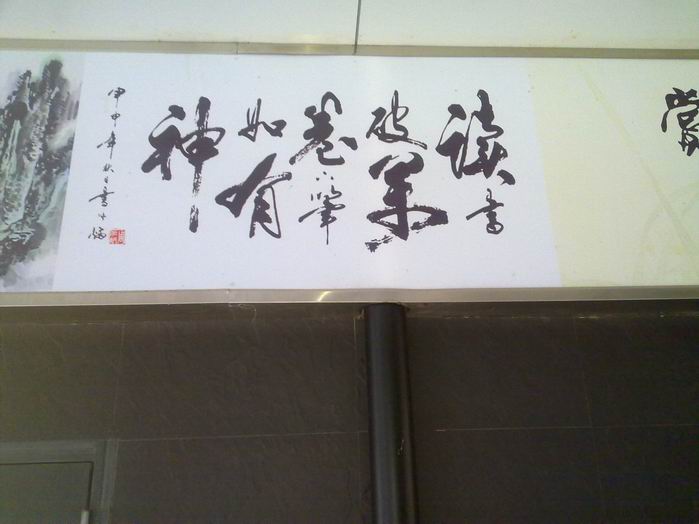 读书
破万
卷下笔
如有
神
甲申年秋月书于